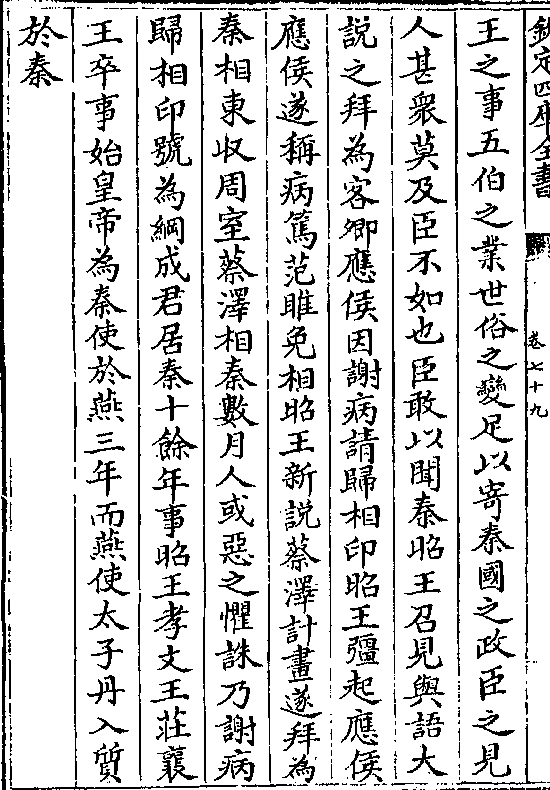 欽定四庫全書
卷七十九
王之事五伯之業世俗之變足以寄秦國之政臣之見
人甚衆莫及臣不如也臣敢以聞秦昭王召見與語大
說之拜為客卿應侯因謝病請歸相印昭王彊起應侯
應侯遂稱病篤范雎免相昭王新說蔡澤計畫遂拜為
秦相東収周室蔡澤相秦數月人或惡之懼誅乃謝病
歸相印號為綱成君居秦十餘年事昭王孝文王莊襄
王卒事始皇帝為秦使於燕三年而燕使太子丹入質
於秦